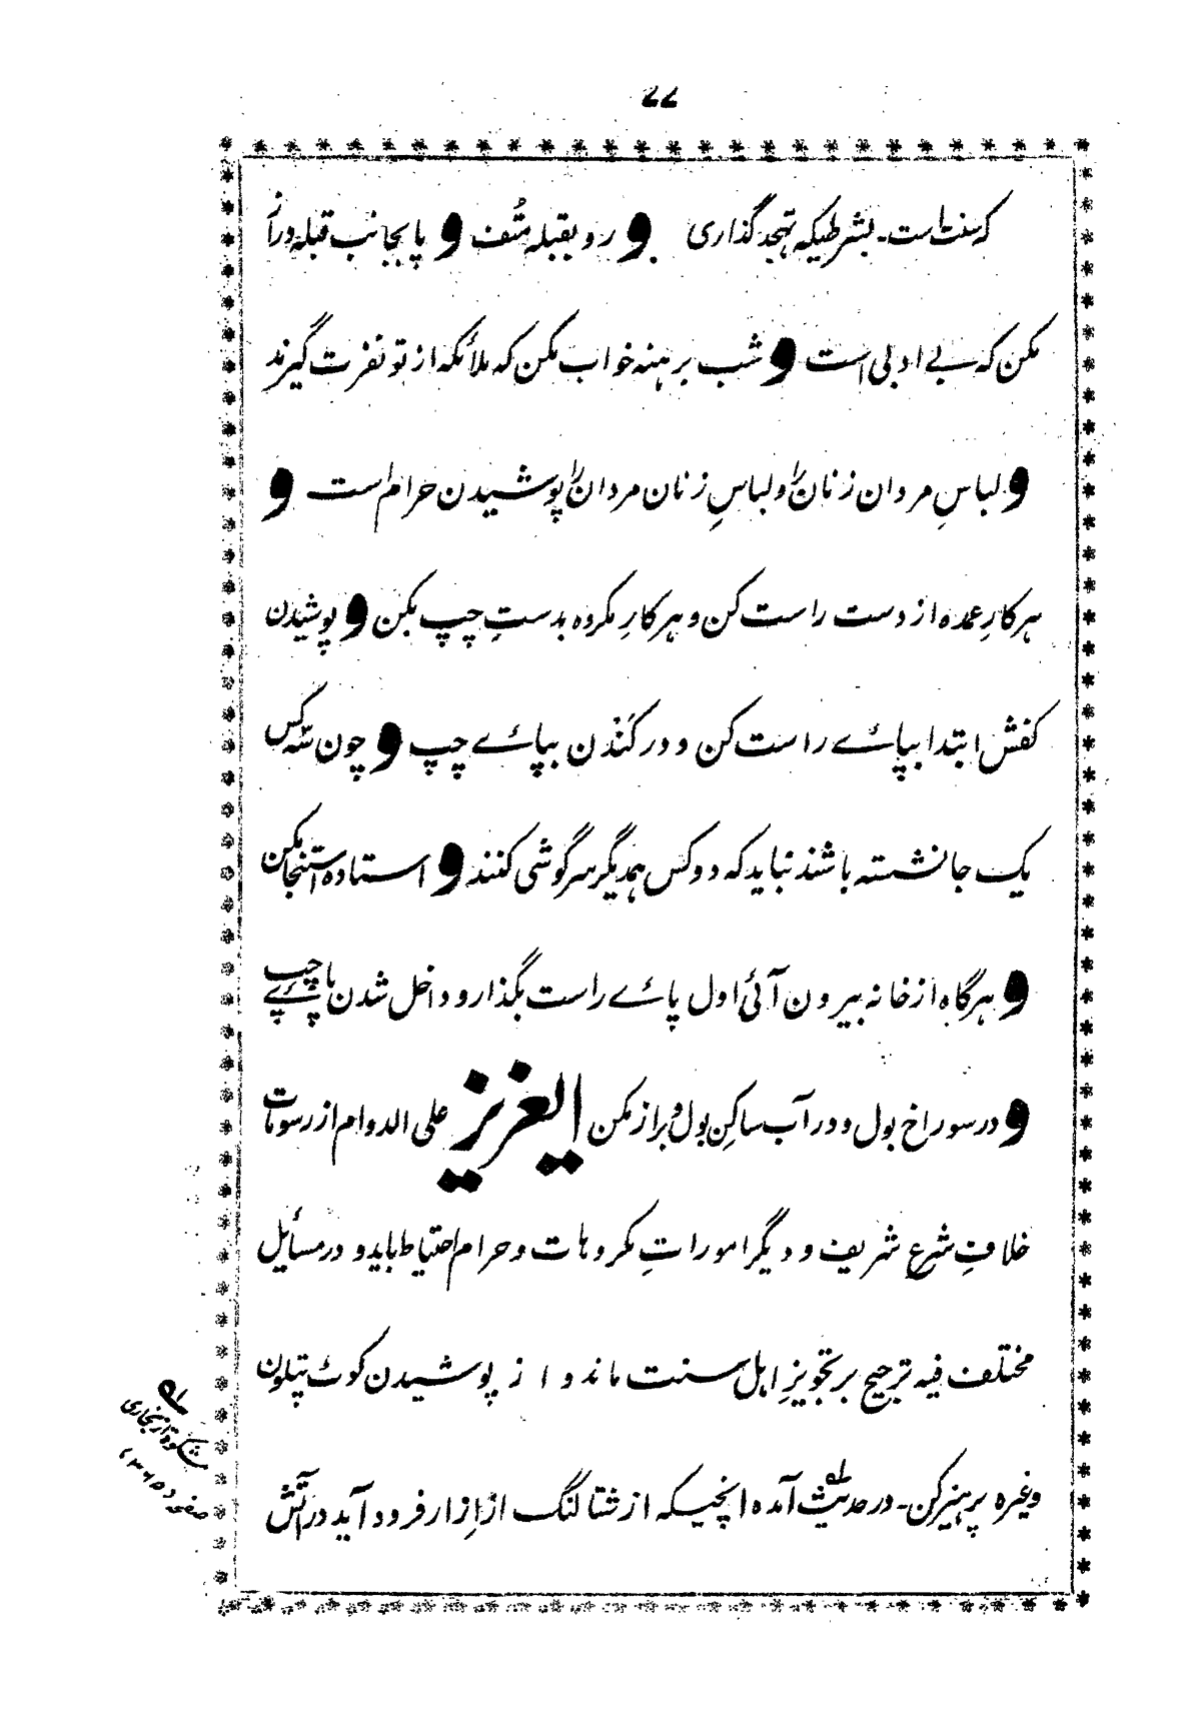 ۷۷
که سنت است۔ بشرطیکه تهجد گذاری و رو بقبله تُف و پا بجانب قبله دراز
مکن که بے ادبی است و شب برهنه خواب مکن که ملائکه از تو نفرت گیرند
و لباسِ مردان زنان را و لباسِ زنان مردان را پوشیدن حرام است و
هر کارِ عمده از دست راست کن و هر کارِ مکروه بدستِ چپ بکن و پوشیدن
کفش ابتدا بپائے راست کن و در کَندن بپائے چپ و چون سه کس
یک جا نشسته باشند نباید که دو کس همدیگر سرگوشی کنند و استاده استنجا مکن
و هرگاه از خانه بیرون آئی اول پائے راست بگذار و داخل شدن با پائے چپ
و در سوراخ بول و در آب ساکن بول و براز مکن ایعزیز علی الدوام از رسومات
خلافِ شرع شریف و دیگر اموراتِ مکروهات و حرام احتیاط باید و در مسائل
مختلف فیه ترجیح بر تجویزِ اہل سنت ماند و از پوشیدن کوٹ پتلون
وغیره پرهیز کن۔ در حدیث آمده انچیکه از شتالنگ از اِزار فرود آید در آتش
مشکوة از بخاری
صفحه